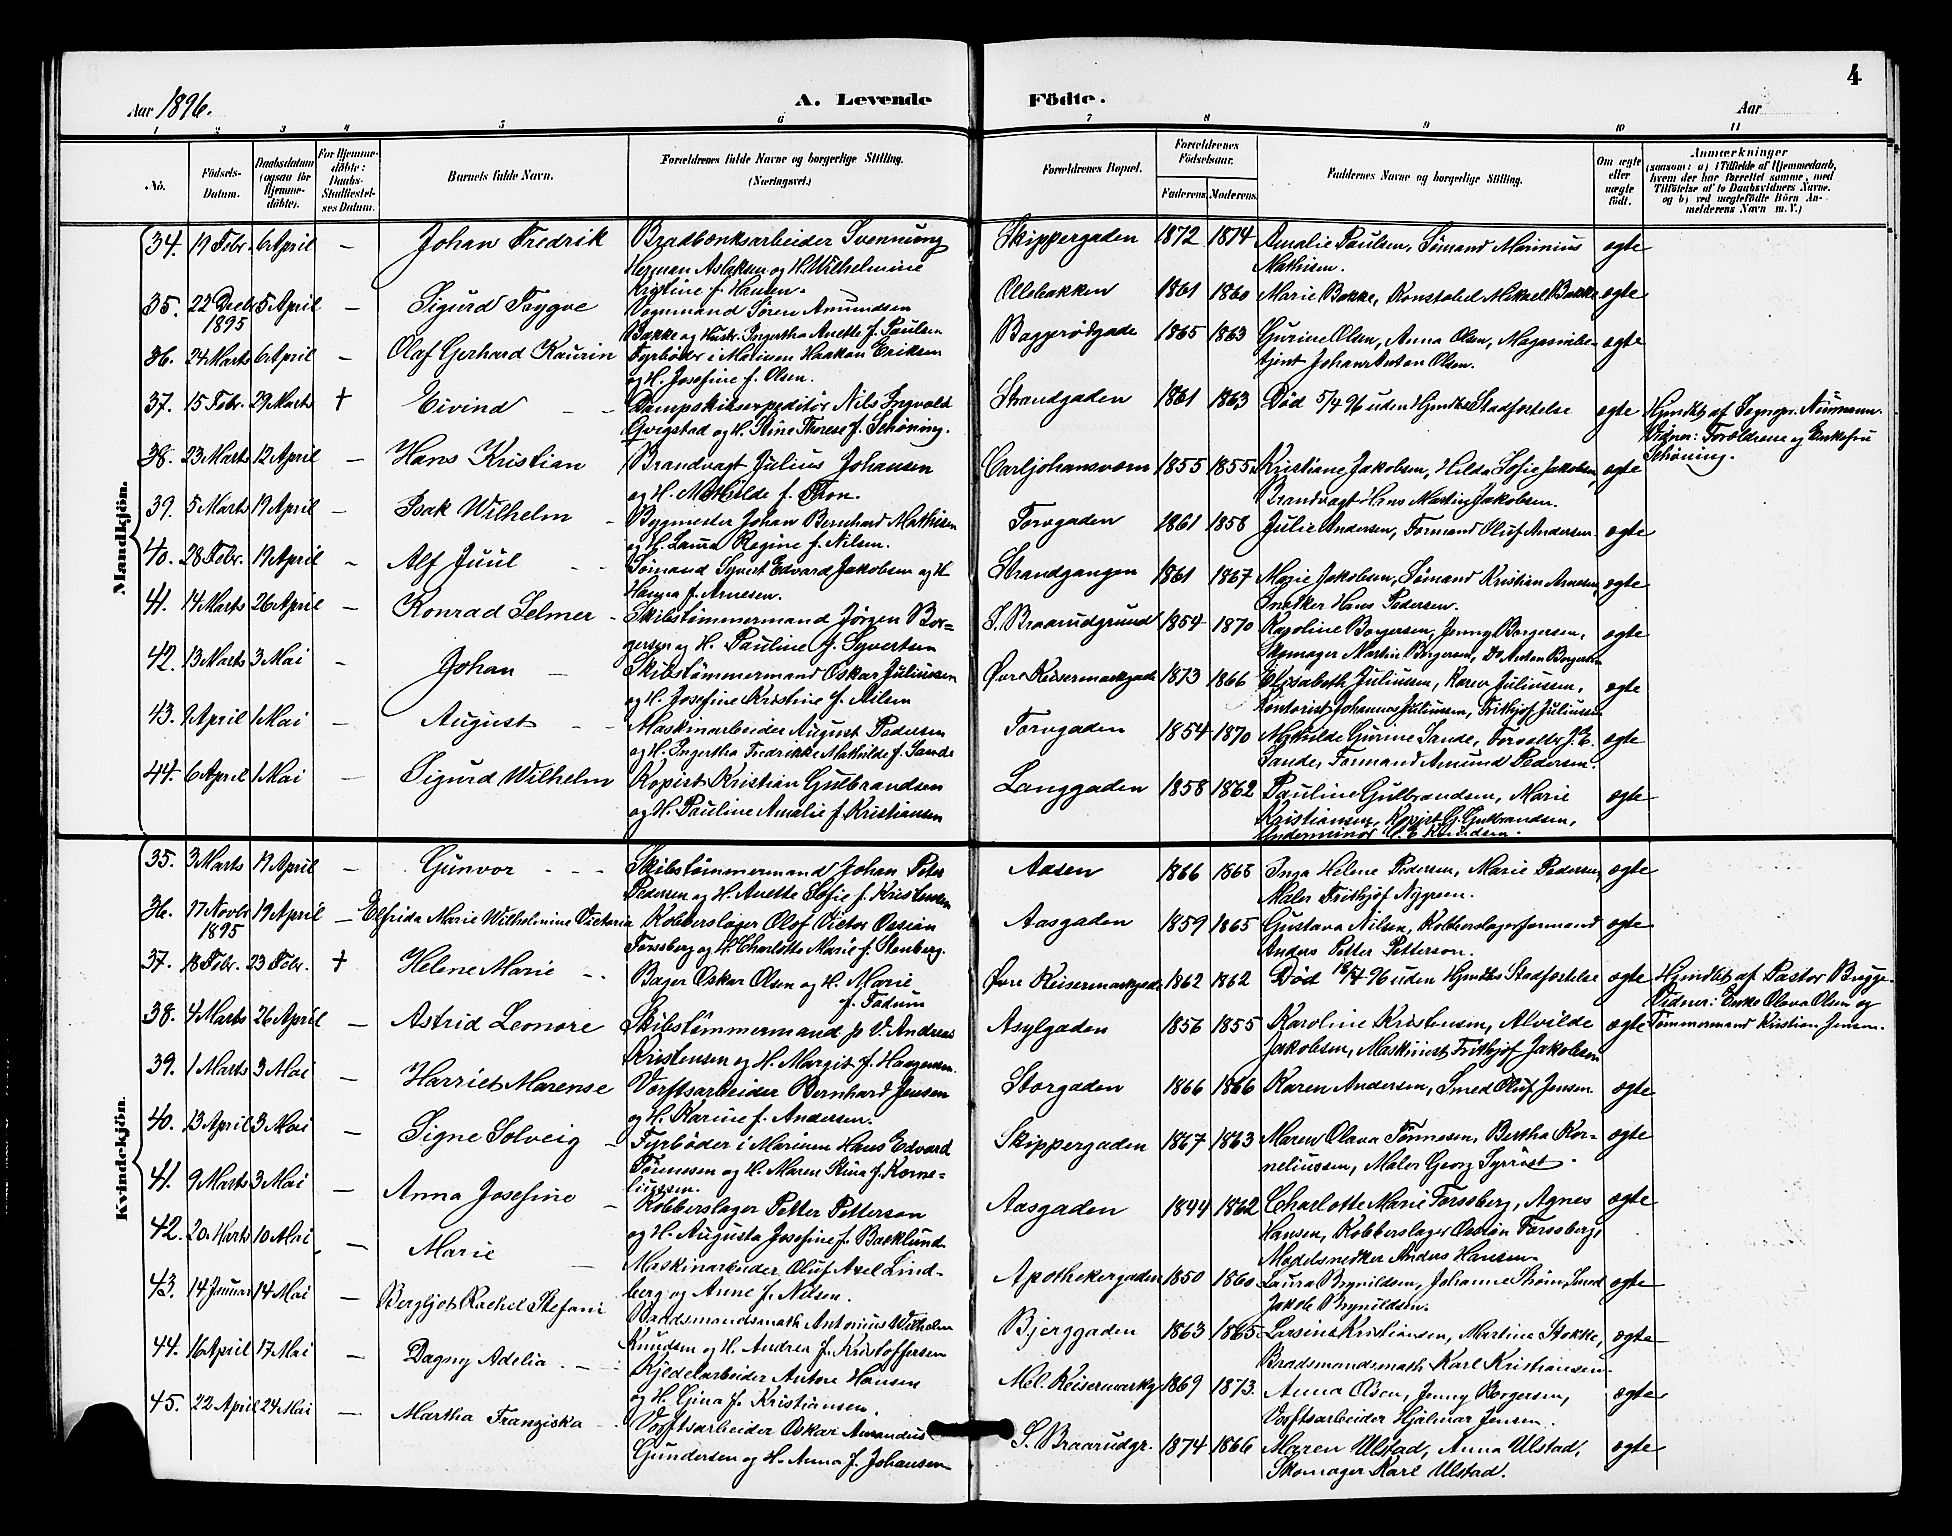 4
Aar 1896.
A. Levende Födte.
Aar
1 2 3 4 5 6 7 8 9 10 11
No.
Födsels-Datum.
Daabsdatum (ogsaa for Hjemme-döbte).
For Hjemme-döbte: Daabs-Stadfæstel-ses Datum.
Barnets fulde Navn.
Forældrenes fulde Navne og borgerlige Stilling. (Næringsvei.)
Forældrenes Bopæl.
Forældrenes Födselsaar.
Faderens. Moderens.
Faddernes Navne og borgerlige Stilling.
Om ægte eller uægte födt.
Anmærkninger
(saasom: a) i Tilfælde af Hjemmedaab, hvem der har forrettet samme, med Tilföielse af to Daabsvidners Navne, og b) ved uægtefödte Börn An-melderens Navn m. V.)
Mandkjön.
34. 19 Febr. 6 April – Johan Fredrik Bradbænksarbeider Svennung Skippergaden 1872 1874 Amalie Paulsen, Sömand Marinius ægte
Herman Aslaksen og H. Wilhelmine Mathisen.
Kristine f. Hansen.
35. 22 Decb. 5 April – Sigurd Trygve Vognmand Sören Amundsen Ollebakken 1861 1860 Marie Bakke, Konstabel Mikael Bakke ægte
1895 Bakke og Hustr. Ingertha Anette f. Paulsen
36. 24 Marts 6 April – Olaf Gerhard Kaurin Fyrböder i Marinen Haakon Eriksen Baggerödgade 1865 1863 Gurine Olsen, Anna Olsen, Magasinbe- ægte
og H. Josefine f. Olsen. tjent Johan Anton Olsen.
37. 15 Febr. 29 Marts † Eivind Dampskibsexpeditör Nils Ingvald Strandgaden 1861 1863 Död 5/4 96 uden Hjmdbs Stadfæstelse ægte Hjmdbt af Sognepr. Neumann.
Gvigstad og H. Stine Therese f. Schöning. Vidner: Forældrene og Enkefru
Schöning.
38. 23 Marts 12 April – Hans Kristian Brandvagt Julius Johansen Carljohansværn 1855 1855 Kristiane Jakobsen, Hilda Sofie Jakobsen, ægte
og H. Mathilde f. Thon. Brandvagt Hans Martin Jakobsen.
39. 5 Marts 19 April – Isak Wilhelm Bygmester Johan Bernhard Mathisen Torvgaden 1861 1858 Julie Andersen, Formand Oluf Andersen ægte
og H. Laura Regine f. Nilsen.
40. 28 Febr. 19 April – Alf Juul Sömand Syvert Edvard Jakobsen og H. Strandgangen 1861 1867 Marie Jakobsen, Sömand Kristian Arnesen, ægte
Hanna f. Arnesen. Snekker Hans Pedersen.
41. 14 Marts 26 April – Konrad Selmer Skibstömmermand Jörgen Bor- S. Braarudgrund 1854 1870 Karoline Borgersen, Jenny Borgersen, ægte
gersen og H. Pauline f. Syvertsen Skomager Martin Borgersen, Do Anton Borgersen
42. 13 Marts 3 Mai – Johan Skibstömmermand Oskar Juliussen Övre Keisermarkgade 1873 1866 Elisabeth Juliussen, Karen Juliussen, ægte
og H. Josefine Kristine f. Nilsen Kontorist Johannes Juliussen, Frithjof Juliussen
43. 9 April 1 Mai – August Maskinarbeider August Pedersen Torvgaden 1854 1870 Mathilde Gurine Sande, Forvalter J. E. ægte
og H. Ingertha Fredrikke Mathilde f. Sande Sande, Formand Amund Pedersen.
44. 6 April 1 Mai – Sigurd Wilhelm Kopist Kristian Gulbrandsen Langgaden 1858 1862 Pauline Gulbrandsen, Marie ægte
og H. Pauline Amalie f. Kristiansen Kristiansen, Kopist G. Gulbrandsen,
Underminör
Kvindekjön.
35. 3 Marts 19 April – Gunvor Skibstömmermand Johan Peter Aasen 1866 1868 Inga Helene Pedersen, Marie Pedersen, ægte
Pedersen og H. Anette Sofie f. Kristensen Maler Frithjof Nygreen.
36. 17 Novbr. 19 April – Elfrida Marie Wilhelmine Victoria Kobberslager Olof Victor Ossian Aasgaden 1859 1865 Gustava Nilsen, Kobberslagerformand ægte
1895 Forssberg og H. Charlotte Marie f. Stenberg. Anders Petter Petterson.
37. 18 Febr. 23 Febr. † Helene Marie Bager Oskar Olsen og H. Marie Övre Keisermarkgade 1862 1862 Död 18/4 96 uden Hjmdbs Stadfæstelse ægte Hjmdbt af Pastor Brygge.
f. Fadum Vidner: Enke Olava Olsen og
Tömmermand Kristian Jensen.
38. 4 Marts 26 April – Astrid Leonore Skibstömmermand p. V. Andreas Asylgaden 1856 1855 Karoline Kristensen, Alvilde ægte
Kristensen og H. Margit f. Haagensen Jakobsen, Maskinist Frithjof Jakobsen
39. 1 Marts 3 Mai – Harriet Marense Værftsarbeider Bernhard Jensen Storgaden 1866 1866 Karen Andersen, Smed Oluf Jensen ægte
og H. Karine f. Andersen.
40. 13 April 3 Mai – Signe Solveig Fyrböder i Marinen Hans Edvard Skippergaden 1867 1863 Maren Olava Tönnesen, Bertha Kor- ægte
Tönnesen og H. Maren Stina f. Korne- neliussen, Maler Georg Syrrist.
liussen.
41. 9 Marts 3 Mai – Anna Josefine Kobberslager Petter Petterson Aasgaden 1844 1862 Charlotte Marie Forssberg, Agnes ægte
og H. Augusta Josefine f. Backlund Hansen, Kobberslager Ossian Forssberg,
Modelsnedker Anders Hansen.
42. 20 Marts 10 Mai – Marie Maskinarbeider Oluf Axel Lind- Apothekergaden 1850 1860 Laura Brynildsen, Johanne Ström, Smed ægte
berg og Anne f. Nilsen. Jakob Brynildsen.
43. 14 Januar 14 Mai – Bergljot Rachel Stefanie Baadsmandsmath Antonius Wilhelm Bjerggaden 1863 1865 Larsine Kristiansen, Martine Stokke, ægte
Knudsen og H. Andrea f. Kristoffersen Baadsmandsmath Karl Kristiansen.
44. 16 April 17 Mai – Dagny Adelia Kjedelarbeider Anton Hansen Mel. Keisermarkg. 1869 1873 Anna Olsen, Jenny Borgersen, ægte
og H. Gina f. Kristiansen. Værftsarbeider Hjalmar Jensen.
45. 22 April 24 Mai – Martha Franziska Værftsarbeider Oskar Amandus S. Braarudgr. 1874 1866 Maren Ulstad, Anna Ulstad, ægte
Gundersen og H. Anna f. Johansen Skomager Karl Ulstad.